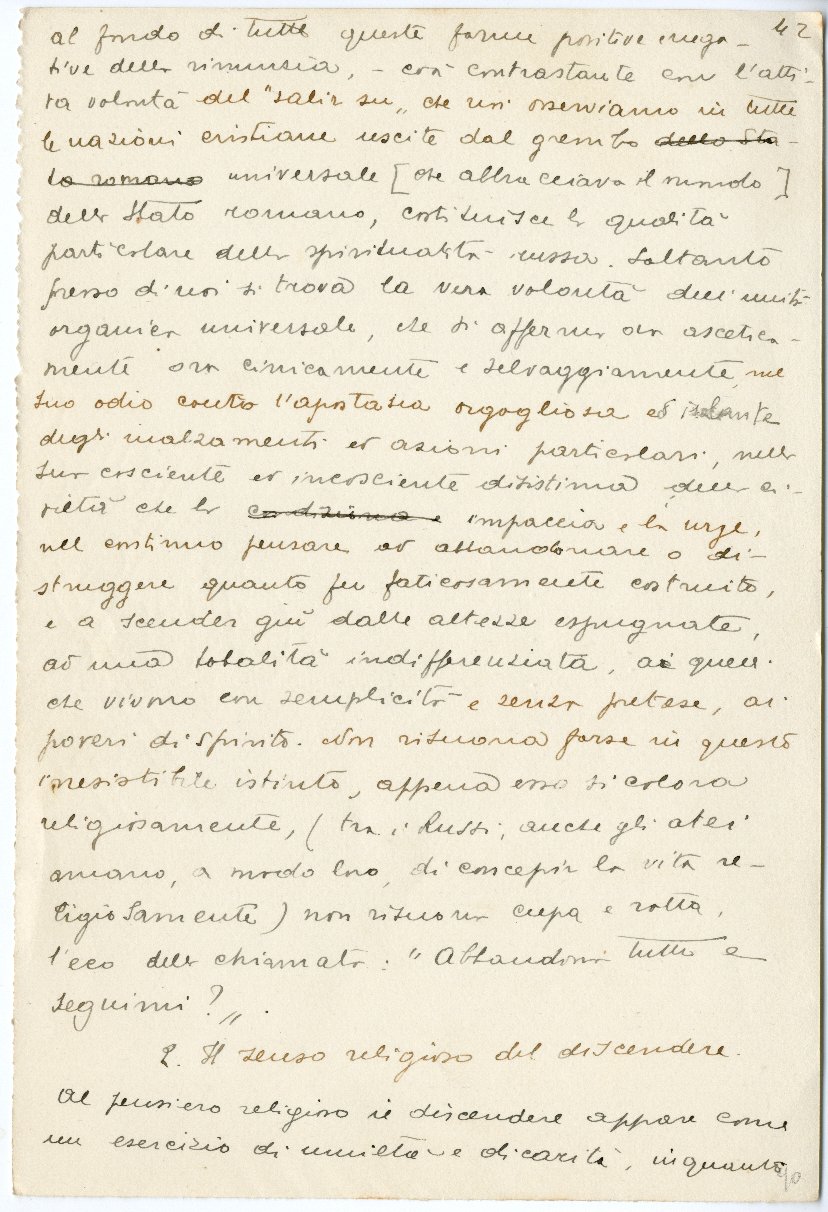 42
al fondo di tutte queste forme positive e nega-
tive della rinunzia, - così contrastante con l'atti-
va volontà del "salir su„ che noi osserviamo in tutte
le nazioni cristiane uscite dal grembo dello Sta-
to romano universale [che abbracciava il mondo]
dello Stato romano, costituisce la qualità
particolare della spiritualità russa. Soltanto
presso di noi si trova la vera volontà dell'unità
organica universale, che si afferma ora ascetica-
mente ora cinicamente e selvaggiamente, nel
suo odio contro l'apostasia orgogliosa ed isolante
degli inalzamenti ed azioni particolari, nella
sua cosciente ed incosciente disistima della ci-
viltà che la condiziona e impaccia e la urge,
nel continuo pensare ad abbandonare o di-
struggere quanto fu faticosamente costruito,
e a scender giù dalle altezze espugnate,
ad una totalità indifferenziata, a quei
che vivono con semplicità e senza pretese, ai
poveri di spirito. Non risuona forse in questo
irresistibile istinto, appena esso si colora
religiosamente, (tra i Russi, anche gli atei
amano, a modo loro, di concepir la vita re-
ligiosamente) non risuona cupa e rotta,
l'eco della chiamata: "Abbandona tutto e
seguimi?„.
2. Il senso religioso del discendere.
Al pensiero religioso il discendere appare come
un esercizio di umiltà e di carità, in quanto
90